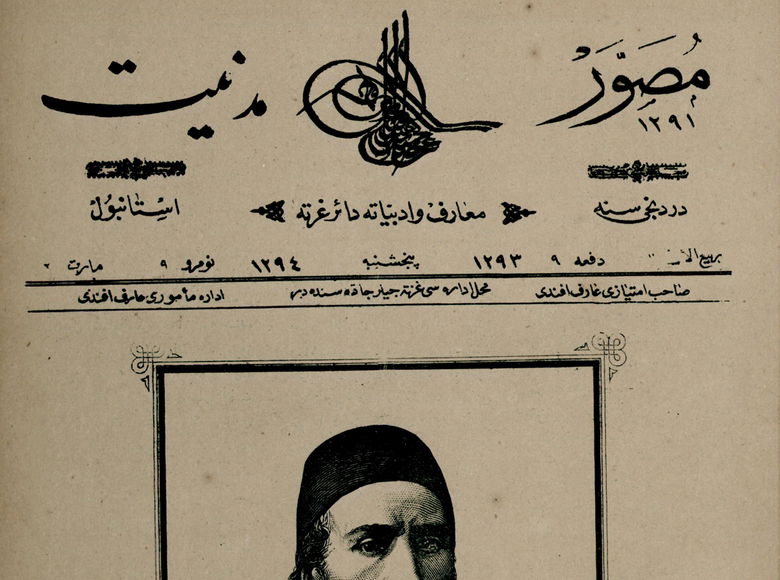 مصوّر مدنیت
١٢٩١
دردنجی سنه معارف وادبیاته دائر غزته اسِتانبوُل
ربیع الاول دفعه ٩ ١٢٩٣ پنجشنبه ١٢٩٤ نومرو ٩ مارت ٢
صاحب امتیازی عارف افندی محل اداره سی غزته جیلر جاده سنده در اداره مأموری عارف افندی